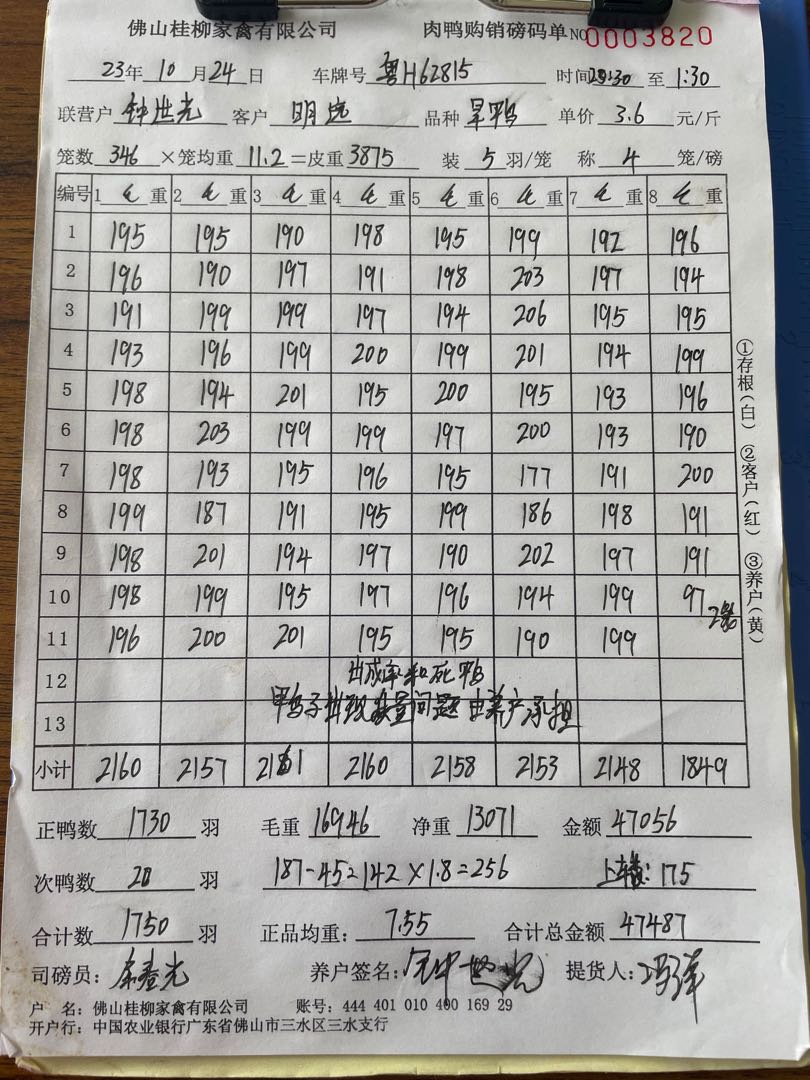 佛山桂柳家禽有限公司 肉鸭购销磅码单 NO 0003820
23年10月24日 车牌号 粤H62815 时间 至 1:30
联营户 钟世光 客户 明远 品种 旱鸭 单价 3.6 元/斤
笼数 346 ×笼均重 11.2 =皮重 3875 装 5 羽/笼 称 4 笼/磅
编号 1 毛 重 2 毛 重 3 毛 重 4 毛 重 5 毛 重 6 毛 重 7 毛 重 8 毛 重
1 195 195 190 198 195 199 192 196
2 196 190 197 191 198 203 197 194
3 191 199 199 197 194 206 195 195
4 193 196 199 200 199 201 194 199
5 198 194 201 195 200 195 193 196
6 198 203 199 199 197 200 193 190
7 198 193 195 196 195 177 191 200
8 199 187 191 195 199 186 198 191
9 198 201 194 197 190 202 197 191
10 198 199 195 197 196 194 199 97 2笼
11 196 200 201 195 195 190 199
12 出成率和死鸭
13 鸭子出现质量问题由养户承担
小计 2160 2157 2161 2160 2158 2153 2148 1849
正鸭数 1730 羽 毛重 16946 净重 13071 金额 47056
次鸭数 20 羽 187-45=142×1.8=256 上车费:175
合计数 1750 羽 正品均重: 7.55 合计总金额 47487
司磅员: 养户签名: 钟世光 提货人:
户 名: 佛山桂柳家禽有限公司 账号: 444 401 010 400 169 29
开户行: 中国农业银行广东省佛山市三水区三水支行
①存根(白) ②客户(红) ③养户(黄)